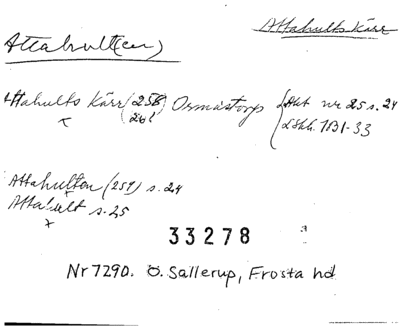 Attahult(en)
Attahults Kärr
Attahults Kärr (258) Ormastorp { Akt nr 25 s. 24
261 LSkh. 7131-33
Attahulten (259) s. 24
Attahult s. 25
33278
Nr 7290. Ö. Sallerup, Frosta hd